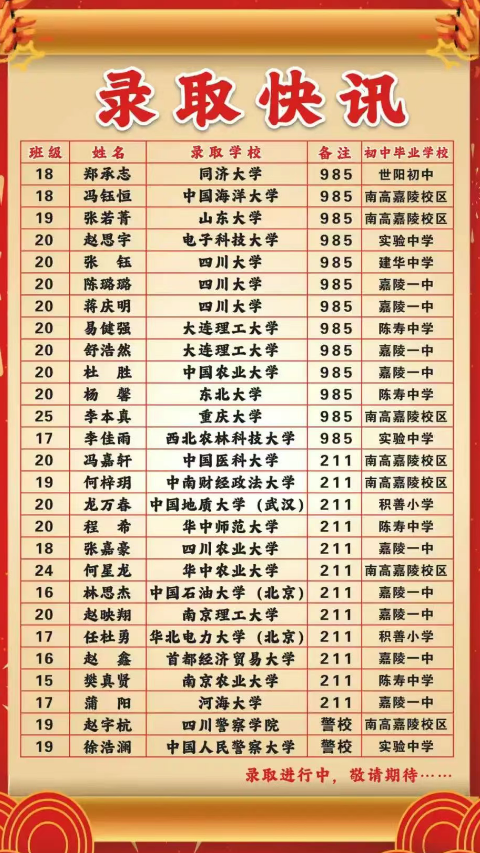 录取快讯
班级 姓名 录取学校 备注 初中毕业学校
18 郑承志 同济大学 985 世阳初中
18 冯钰恒 中国海洋大学 985 南高嘉陵校区
19 张若菁 山东大学 985 南高嘉陵校区
20 赵思宇 电子科技大学 985 实验中学
20 张 钰 四川大学 985 建华中学
20 陈璐璐 四川大学 985 嘉陵一中
20 蒋庆明 四川大学 985 嘉陵一中
20 易健强 大连理工大学 985 陈寿中学
20 舒浩然 大连理工大学 985 嘉陵一中
20 杜 胜 中国农业大学 985 嘉陵一中
20 杨 馨 东北大学 985 陈寿中学
25 李本真 重庆大学 985 南高嘉陵校区
17 李佳雨 西北农林科技大学 985 实验中学
20 冯嘉轩 中国医科大学 211 南高嘉陵校区
19 何梓玥 中南财经政法大学 211 南高嘉陵校区
20 龙万春 中国地质大学（武汉） 211 积善小学
20 程 希 华中师范大学 211 陈寿中学
18 张嘉豪 四川农业大学 211 嘉陵一中
24 何星龙 华中农业大学 211 南高嘉陵校区
16 林思杰 中国石油大学（北京） 211 嘉陵一中
20 赵映翔 南京理工大学 211 嘉陵一中
17 任杜勇 华北电力大学（北京） 211 积善小学
16 赵 鑫 首都经济贸易大学 211 嘉陵一中
15 樊真贤 南京农业大学 211 陈寿中学
17 蒲 阳 河海大学 211 嘉陵一中
19 赵宇杭 四川警察学院 警校 南高嘉陵校区
19 徐浩澜 中国人民警察大学 警校 实验中学
录取进行中，敬请期待……